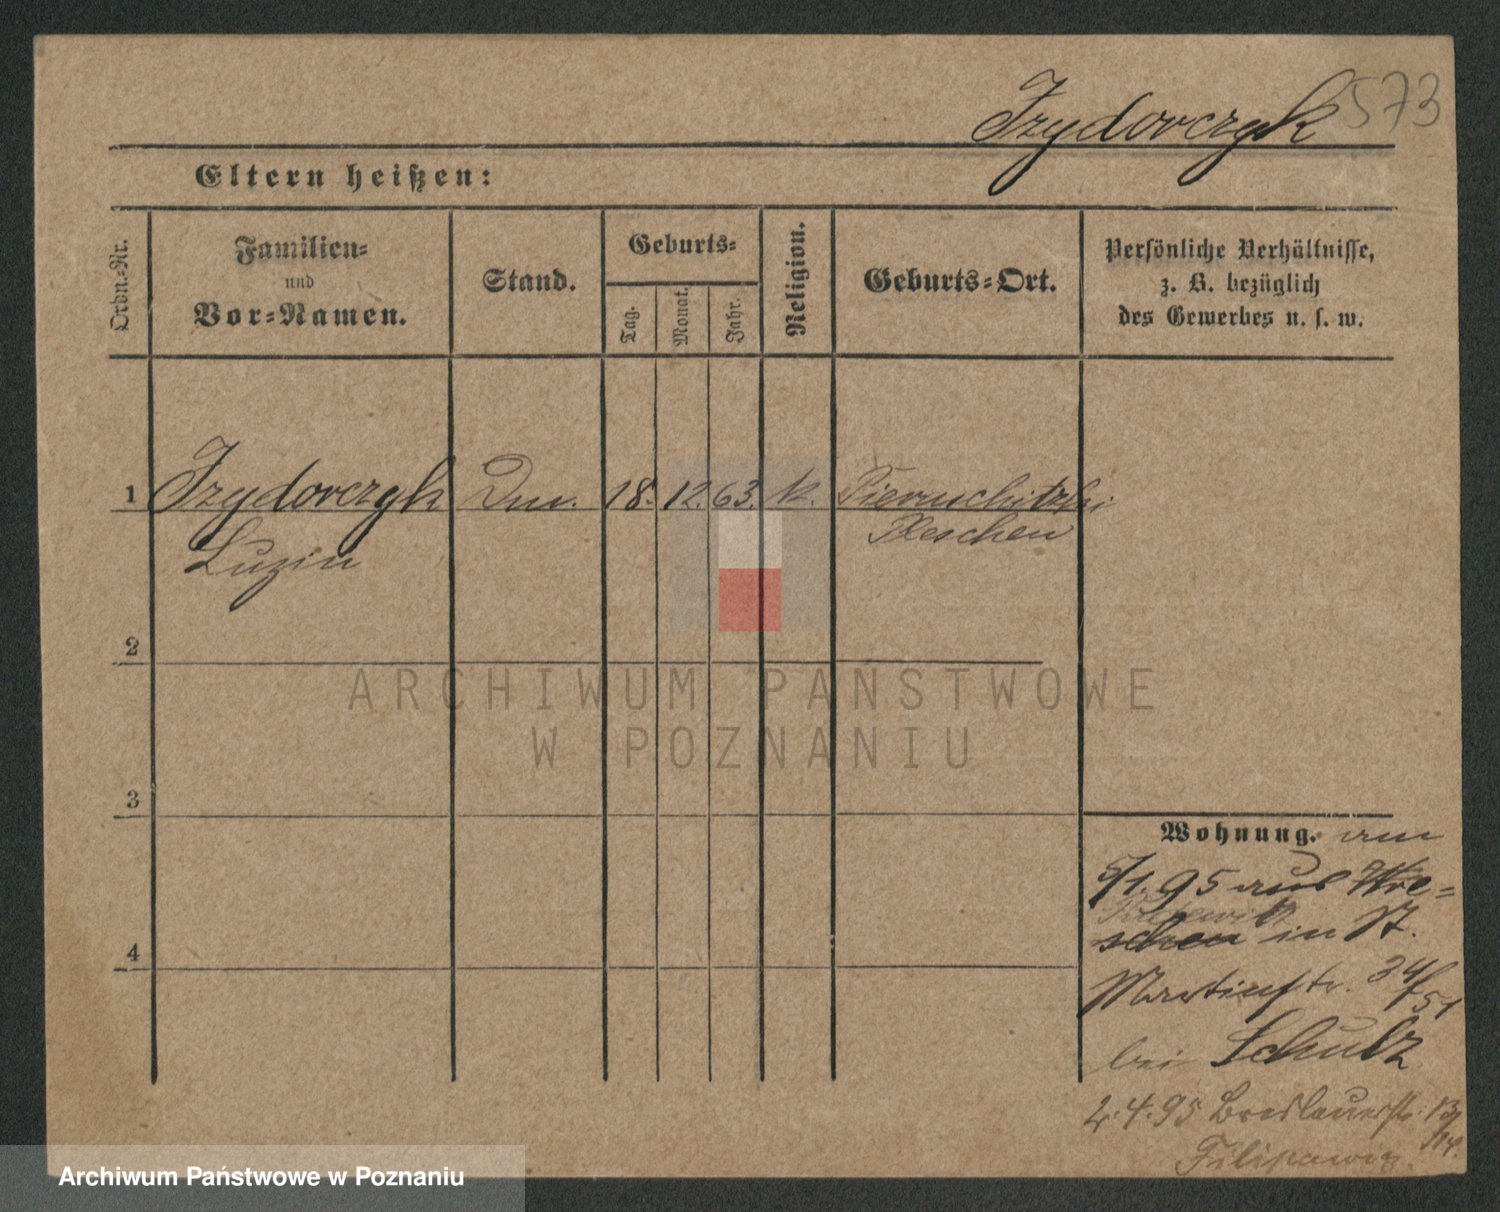 Izydorczyk 573
Eltern heißen:
Ordn.-Nr.
Familien-
und
Vor-Namen.
Stand.
Geburts-
Tag.
Monat.
Jahr.
Religion.
Geburts-Ort.
Persönliche Verhältnisse,
z. B. bezüglich
des Gewerbes u. s. w.
1 Izydorczyk 18. 12. 63. k.
Pleschen
Luzin
2
ARCHIWUM PAŃSTWOWE
W POZNANIU
3
Wohnung. am
5/1. 95 aus Wre-
schen in St.
Martinstr. 34/51
bei Schulz
2.4.95 Breslauerstr. 13/14.
Filipawicz.
4
Archiwum Państwowe w Poznaniu